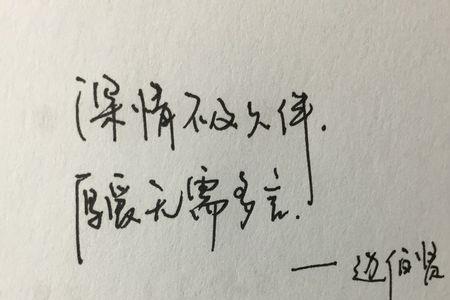 深情不及久伴.
厚爱无需多言.
—边伯贤